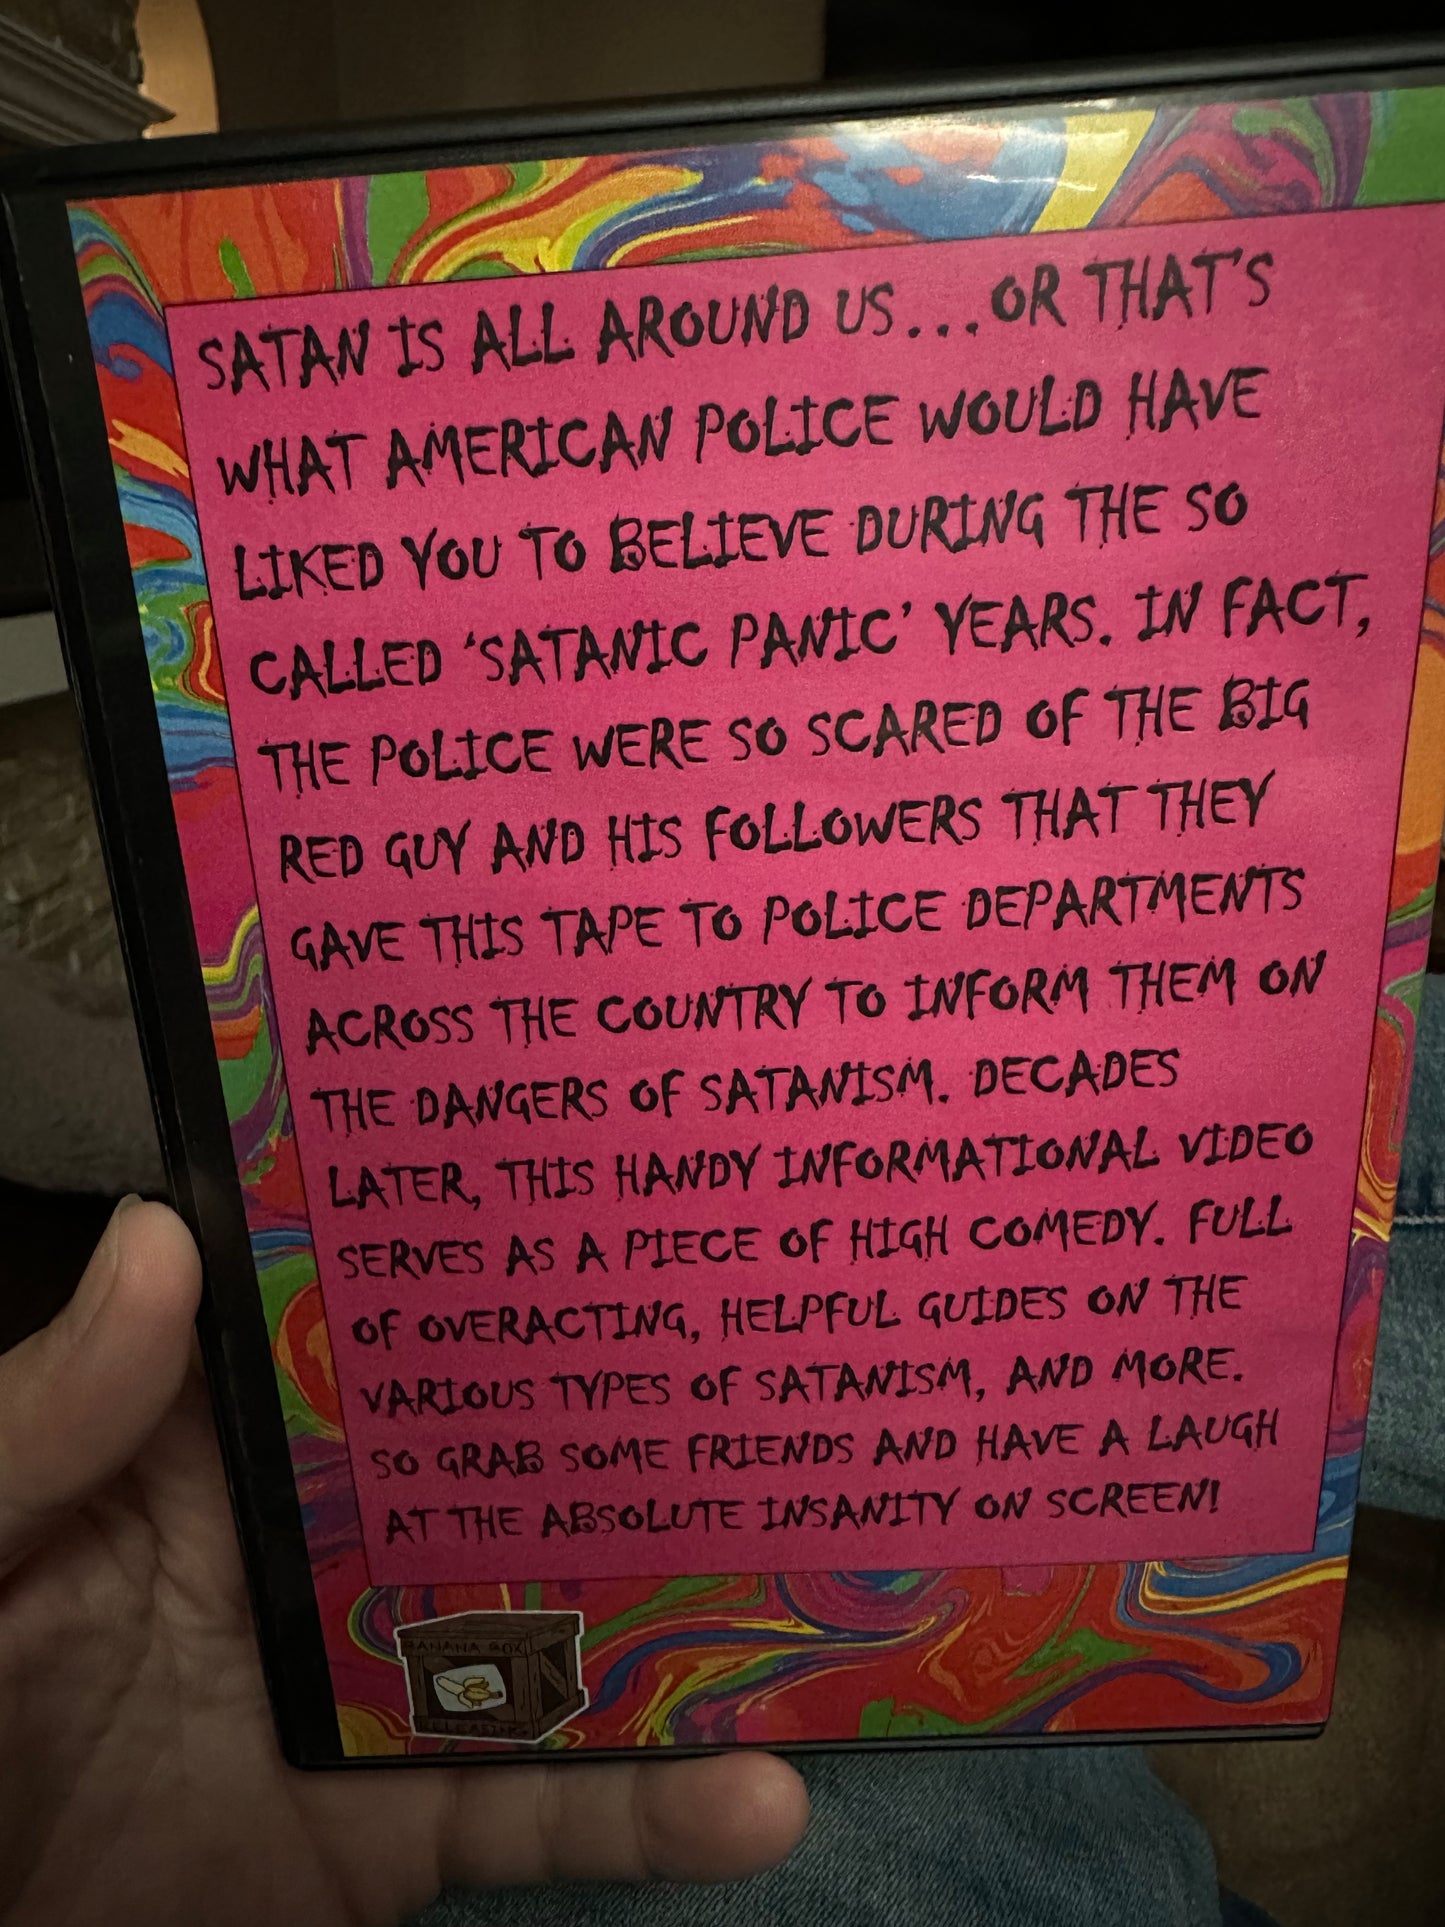 SATAN IS ALL AROUND US...OR THAT'S
WHAT AMERICAN POLICE WOULD HAVE
LIKED YOU TO BELIEVE DURING THE SO
CALLED 'SATANIC PANIC' YEARS. IN FACT,
THE POLICE WERE SO SCARED OF THE BIG
RED GUY AND HIS FOLLOWERS THAT THEY
GAVE THIS TAPE TO POLICE DEPARTMENTS
ACROSS THE COUNTRY TO INFORM THEM ON
THE DANGERS OF SATANISM. DECADES
LATER, THIS HANDY INFORMATIONAL VIDEO
SERVES AS A PIECE OF HIGH COMEDY. FULL
OF OVERACTING, HELPFUL GUIDES ON THE
VARIOUS TYPES OF SATANISM, AND MORE.
SO GRAB SOME FRIENDS AND HAVE A LAUGH
AT THE ABSOLUTE INSANITY ON SCREEN!
BANANA BOX
RELEASING